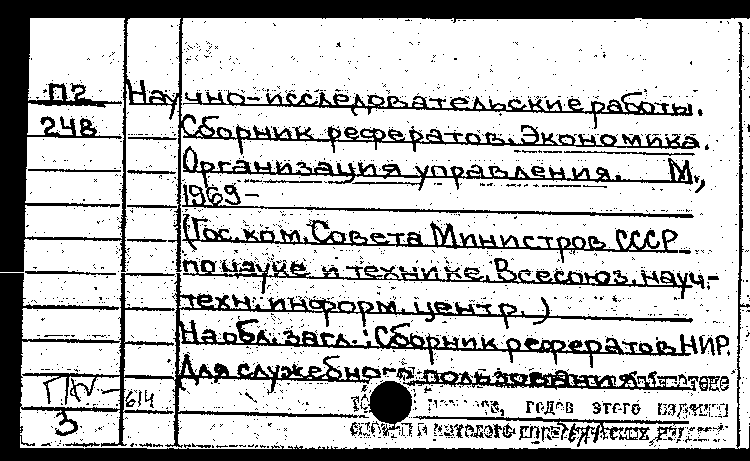 П2 Научно-исследовательские работы.
24В Сборник рефератов. Экономика.
Организация управления. М.,
1969-
(Гос. ком. Совета Министров СССР
по науке и технике. Всесоюз. науч.-
техн. информ. центр.)
На обл. загл.: Сборник рефератов НИР.
Для служебного пользования
614
годов этого издания
3